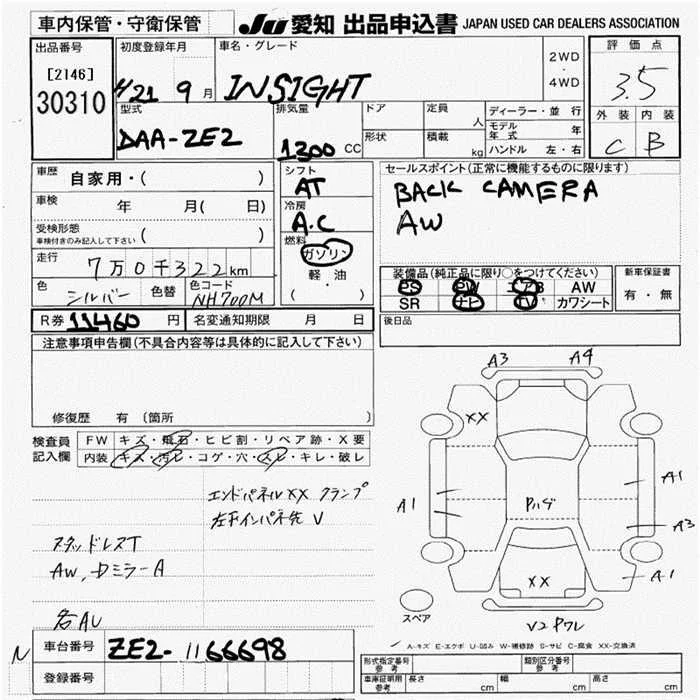 車内保管・守衛保管
JU 愛知 出品申込書 JAPAN USED CAR DEALERS ASSOCIATION
出品番号
[2146]
30310
初度登録年月
H21 9 月
車名・グレード
INSIGHT
2WD
・
4WD
評価点
3.5
外装 内装
C B
型式
DAA-ZE2
排気量
1300 CC
ドア
定員
人
形状
積載
kg
ディーラー・並 行
モデル年式 年
ハンドル 左・右
車歴
自家用・( )
車検
年 月( 日)
受検形態
車検付きのみ記入して下さい ( )
走行
7万0千322km
色
シルバー
色替
色コード
NH700M
シフト
AT
冷房
A.C
燃料
ガソリン
軽・油
( ・ )
セールスポイント(正常に機能するものに限ります)
BACK CAMERA
AW
装備品(純正品に限り○をつけてください)
PS PW エアB AW
SR ナビ TV カワシート
新車保証書
有・無
R券 11460 円 名変通知期限 月 日
後日品
注意事項申告欄(不具合内容等は具体的に記入して下さい)
修復歴 有 (箇所 )
検査員
記入欄
FW キズ・飛石・ヒビ割・リペア跡・X要
内装 キズ・汚レ・コゲ・穴・スレ・キレ・破レ
エンドパネルXX クランプ
左右インパネ先 V
スタッドレスT
AW,Dミラ-A
各AU
A3 A4
XX
A1
A1
Pハゲ
A3
A1
XX
スペア
V2 Pワレ
A-キズ E-エクボ U-凹み W-補修跡 S-サビ C-腐食 XX-交換済
N
車台番号
ZE2-1166698
登録番号
形式指定番号
参考
類別区分番号
参考
車庫証明用
参考
長さ cm 幅 cm 高さ cm